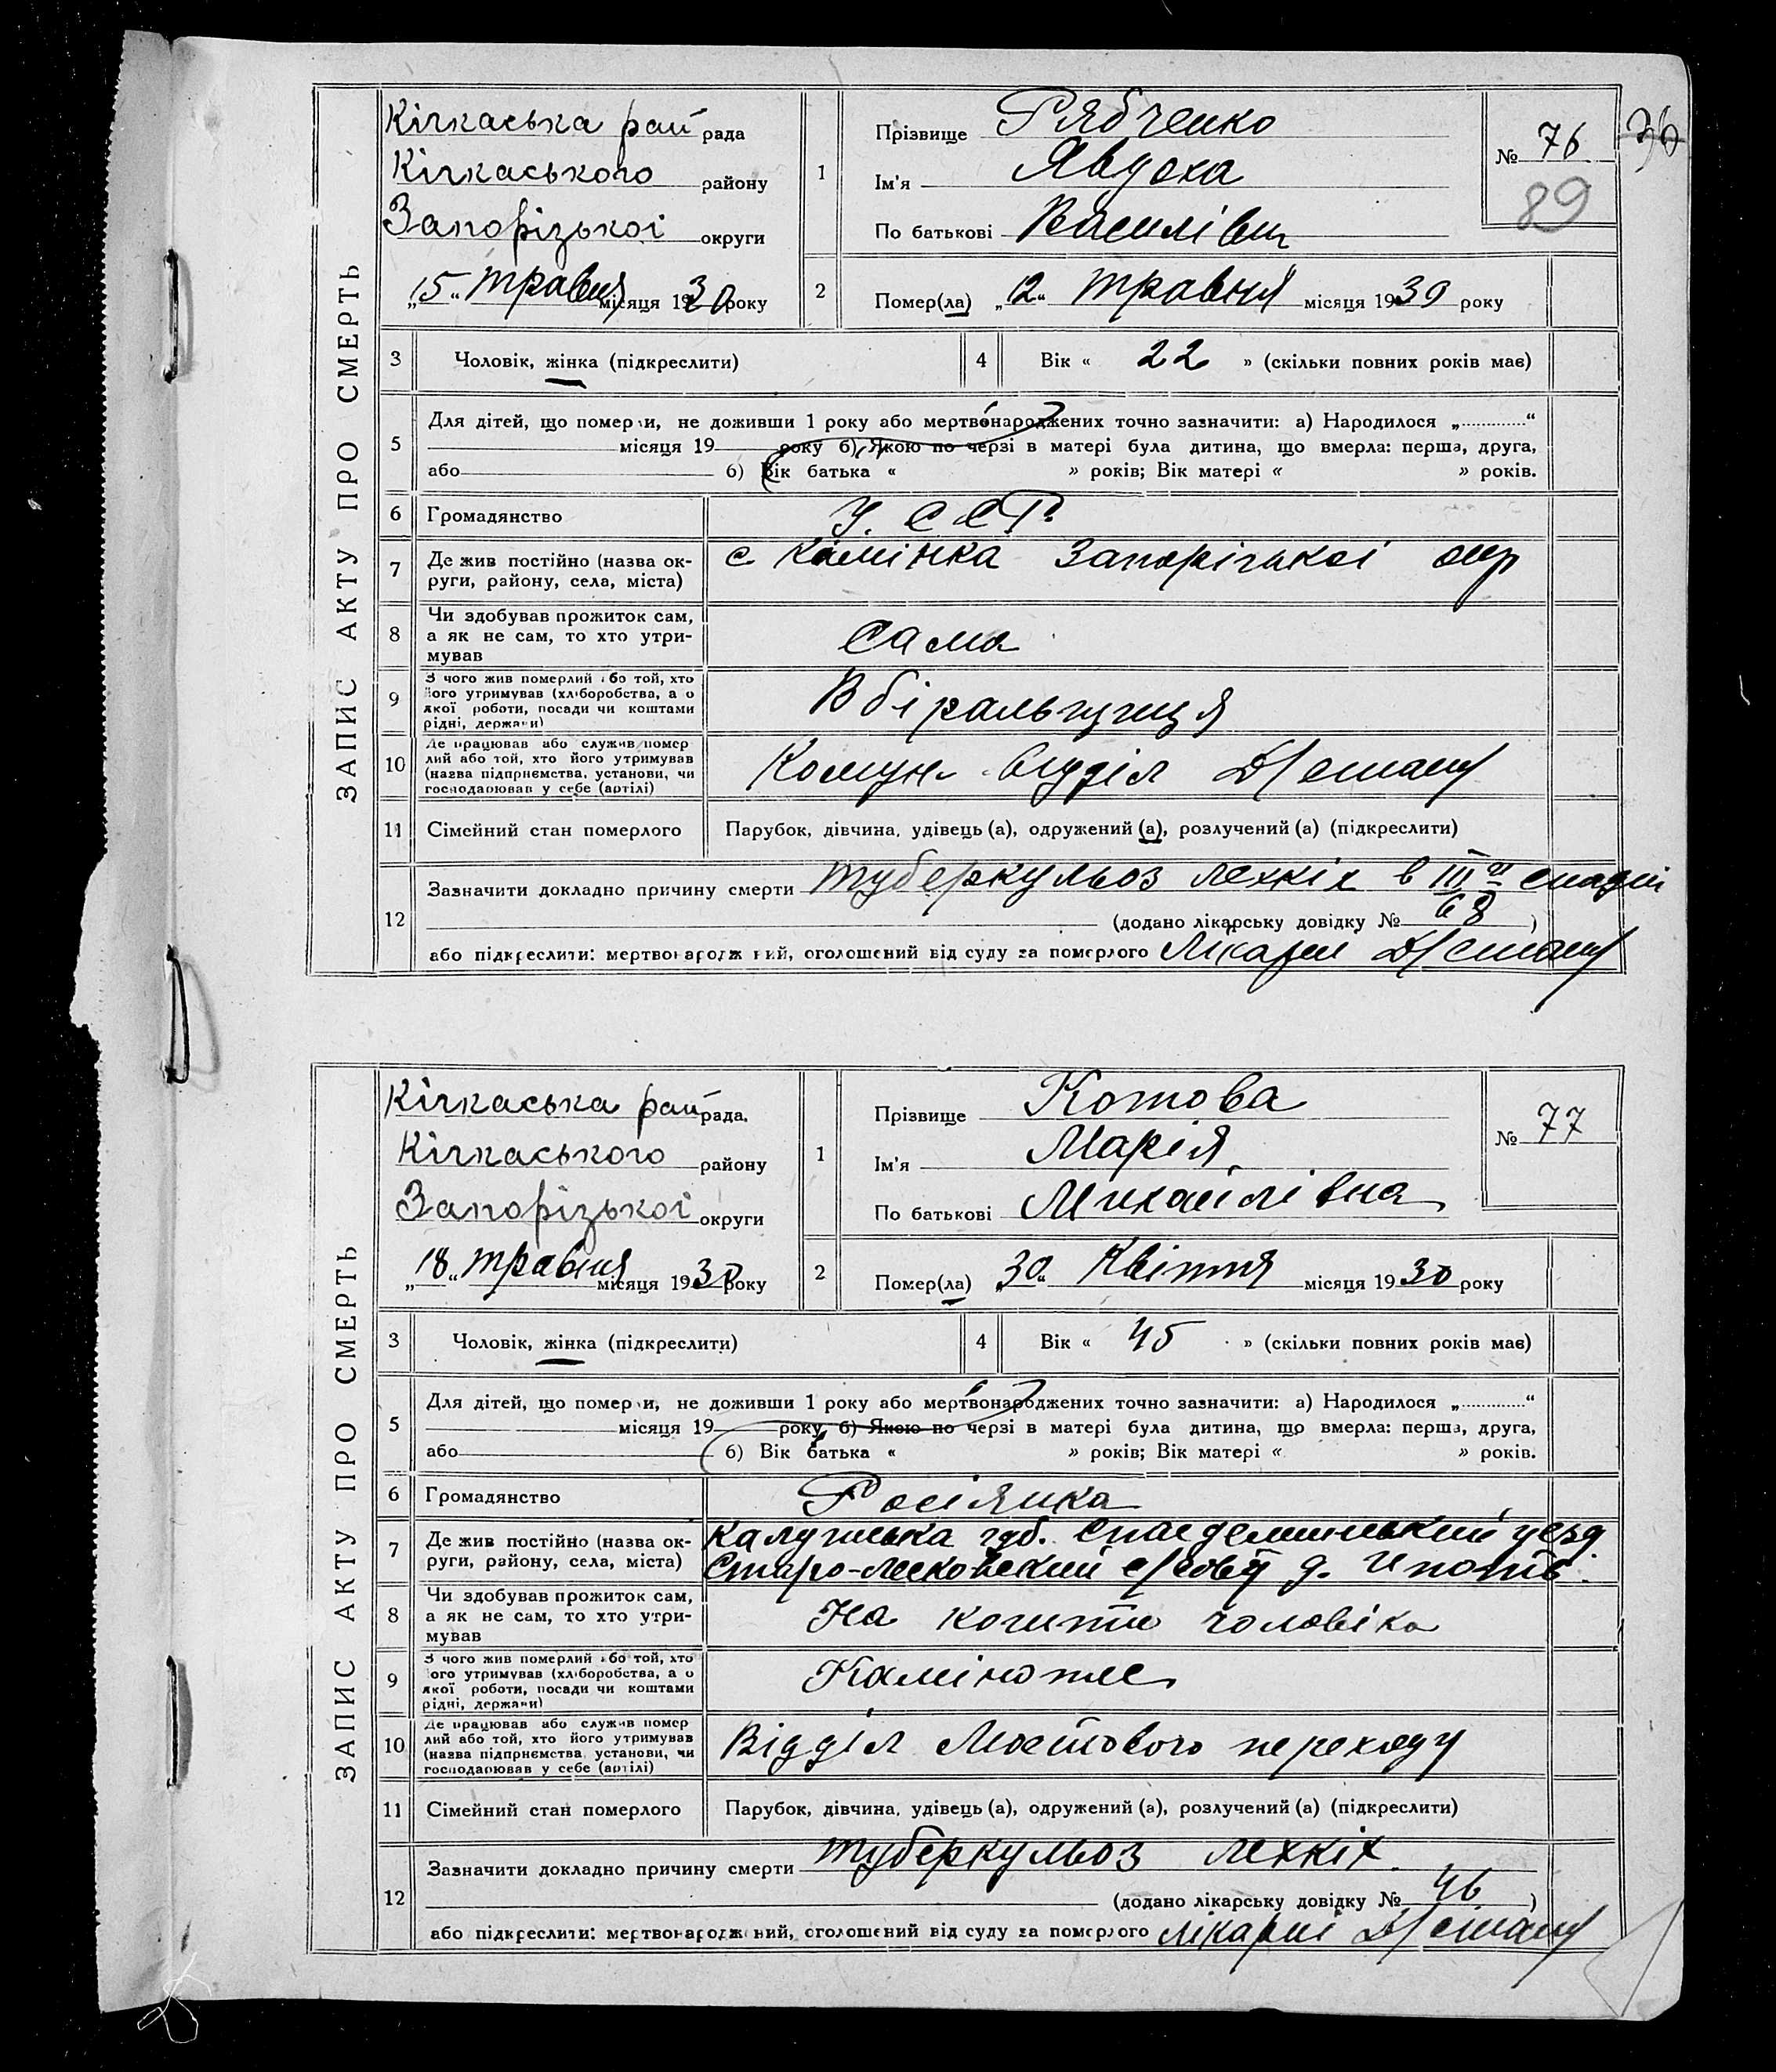 ЗАПИС АКТУ ПРО СМЕРТЬ
Кічкаська рай рада
Кічкаського району
Запорізької округи
„15“ травня місяця 1930 року
1
Прізвище Рябченко
Ім'я Явдоха
По батькові Василівн
№ 76
89
2
Помер(ла) „12“ травня місяця 1930 року
3 Чоловік, жінка (підкреслити)
4 Вік « 22 » (скільки повних років має)
5
Для дітей, що померли, не доживши 1 року або мертвонароджених точно зазначити: а) Народилося „............“
місяця 19 року б) Якою по черзі в матері була дитина, що вмерла: перша, друга,
або б) Вік батька « » років; Вік матері « » років.
6 Громадянство У.С.С.Р.
7 Де жив постійно (назва ок-
руги, району, села, міста)
с Камінка Запорізької окр
8 Чи здобував прожиток сам,
а як не сам, то хто утри-
мував
Сама
9 З чого жив померлий або той, хто
його утримував (хліборобства, а о
якої роботи, посади чи коштами
рідні, держави)
Вбіральниця
10 Де працював або служив помер
лий або той, хто його утримував
(назва підприємства, установи, чи
господарював у себе (артілі)
Комун відділ Д/стану
11 Сімейний стан померлого Парубок, дівчина, удівець (а), одружений (а), розлучений (а) (підкреслити)
12
Зазначити докладно причину смерти туберкульоз лехкіх в III й стадії
(додано лікарську довідку № 68 )
або підкреслити: мертвонароджений, оголошений від суду за померлого Лікарні Д/стану
ЗАПИС АКТУ ПРО СМЕРТЬ
Кічкаська рай рада.
Кічкаського району
Запорізької округи
„18“ травня місяця 1930 року
1
Прізвище Котова
Ім'я Марія
По батькові Михайлівна
№ 77
2
Помер(ла) „30“ Квітня місяця 1930 року
3 Чоловік, жінка (підкреслити)
4 Вік « 45 » (скільки повних років має)
5
Для дітей, що померли, не доживши 1 року або мертвонароджених точно зазначити: а) Народилося „............“
місяця 19 року б) Якою по черзі в матері була дитина, що вмерла: перша, друга,
або б) Вік батька « » років; Вік матері « » років.
6 Громадянство Росіянка
7 Де жив постійно (назва ок-
руги, району, села, міста)
Калузська губ. Спасдеминський уезд
Старо-Лесковский с/совет д.
8 Чи здобував прожиток сам,
а як не сам, то хто утри-
мував
На кошти чоловіка
9 З чого жив померлий або той, хто
його утримував (хліборобства, а о
якої роботи, посади чи коштами
рідні, держави)
Каміnотес
10 Де працював або служив помер
лий або той, хто його утримував
(назва підприємства, установи, чи
господарював у себе (артілі)
Відділ Мостового переходу
11 Сімейний стан померлого Парубок, дівчина, удівець (а), одружений (а), розлучений (а) (підкреслити)
12
Зазначити докладно причину смерти туберкульоз лехкіх
(додано лікарську довідку № 46 )
або підкреслити: мертвонароджений, оголошений від суду за померлого лікарні Д/стану